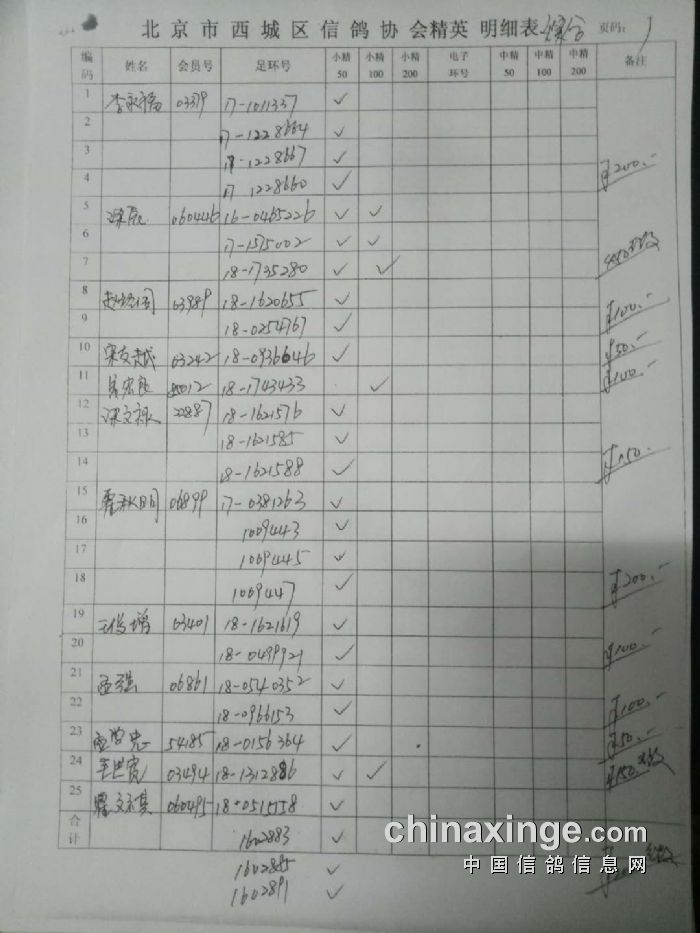 北京市西城区信鸽协会精英明细表 综合 页码: 1
编码 姓名 会员号 足环号 小精50 小精100 小精200 电子环号 中精50 中精100 中精200 备注
1 李永福 03379 17-1011337 ✓
2 17-1228664 ✓
3 17-1228667 ✓
4 17 1228660 ✓ ¥200.-
5 060446 16-0465226 ✓ ✓
6 17-1575002 ✓ ✓
7 18-1735280 ✓ ✓
8 03989 18-1620655 ✓
9 18-0254767 ✓ ¥100.-
10 宋友越 03242 18-0936646 ✓ ¥50.-
11 18-1743433 ✓ ¥100.-
12 梁文禄 22887 18-1621576 ✓
13 18-1621585 ✓
14 18-1621588 ✓ ¥150.-
15 06899 17-0381263 ✓
16 1009443 ✓
17 1009445 ✓
18 1009447 ✓ ¥200.-
19 03401 18-1621619 ✓
20 18-0499921 ✓ ¥100.-
21 孟强 06861 18-0540352 ✓
22 18-0966153 ✓ ¥100.-
23 孟学忠 54185 18-0156364 ✓ ¥50.-
24 03494 18-1312886 ✓ ✓ ¥150
25 060495 18-0515558 ✓
合计 1602883 ✓
1602885 ✓
1602891 ✓
chinaxinge.com
中国信鸽信息网